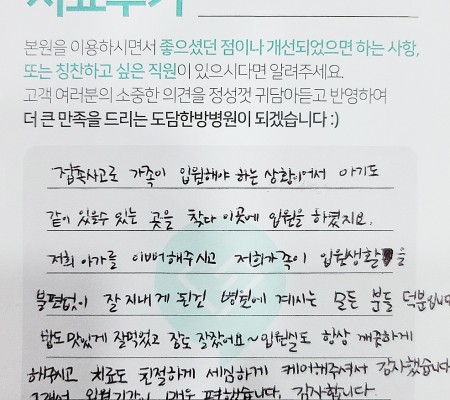 치료후기
본원을 이용하시면서 좋으셨던 점이나 개선되었으면 하는 사항,
또는 칭찬하고 싶은 직원이 있으시다면 알려주세요.
고객 여러분의 소중한 의견을 정성껏 귀담아듣고 반영하여
더 큰 만족을 드리는 도담한방병원이 되겠습니다 :)
접촉사고로 가족이 입원해야 하는 상황이어서 아기도
같이 있을수 있는 곳을 찾다 이곳에 입원을 하였지요.
저희 아가를 이뻐해주시고 저희가족이 입원생활을
불편없이 잘 지내게 된건 병원에 계시는 모든 분들 덕분입니다
밥도 맛있게 잘먹었고 잠도 잘잤어요~ 입원실도 항상 깨끗하게
해주시고 치료도 친절하게 세심하게 케어해주셔서 감사했습니다
그래서 입원기간이 매우 편했습니다. 감사합니다.